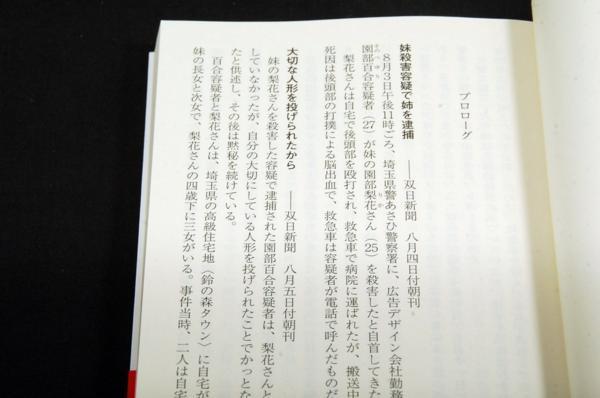 プロローグ
妹殺害容疑で姉を逮捕　――双日新聞　八月四日付朝刊
８月３日午後11時ごろ、埼玉県警あさひ警察署に、広告デザイン会社勤務
園部百合容疑者（27）が妹の園部梨花さん（25）を殺害したと自首してきた
梨花さんは自宅で後頭部を殴打され、救急車で病院に運ばれたが、搬送中
死因は後頭部の打撲による脳出血で、救急車は容疑者が電話で呼んだものだ
大切な人形を投げられたから　――双日新聞　八月五日付朝刊
妹の梨花さんを殺害した容疑で逮捕された園部百合容疑者は、梨花さんと
していなかったが、自分の大切にしている人形を投げられたことでかっとな
たと供述し、その後は黙秘を続けている。
百合容疑者と梨花さんは、埼玉県の高級住宅地（鈴の森タウン）に自宅が
妹の長女と次女で、梨花さんの四歳下に三女がいる。事件当時、二人は自宅